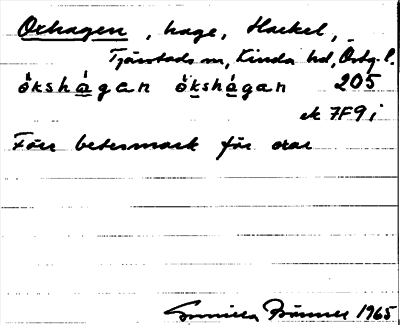 Oxhagen, hage, Hackel,
Tjärstads sn, Kinda hd, Östg. l.
ökshágan ökshágan 205
ek 7F9i
Förr betesmark för oxar
Gunilla Brånner 1965